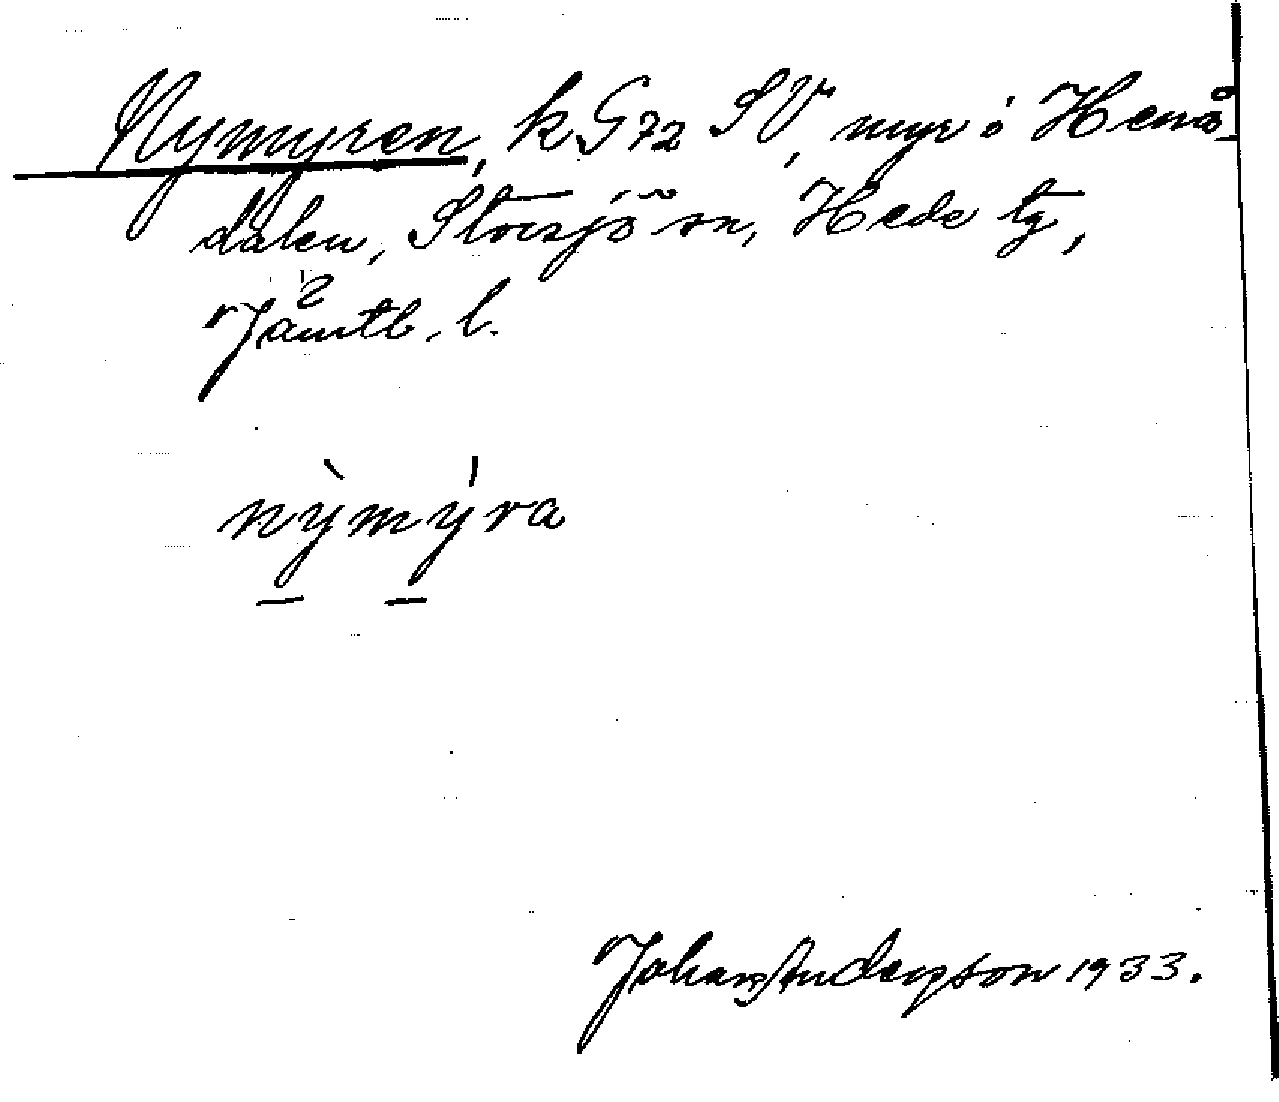 Nymyren, k G72 SV, myr i Henå-
dalen, Storsjö sn, Hede tg,
Jämtl. l.
nỳmýra
Johan Anderson 1933.